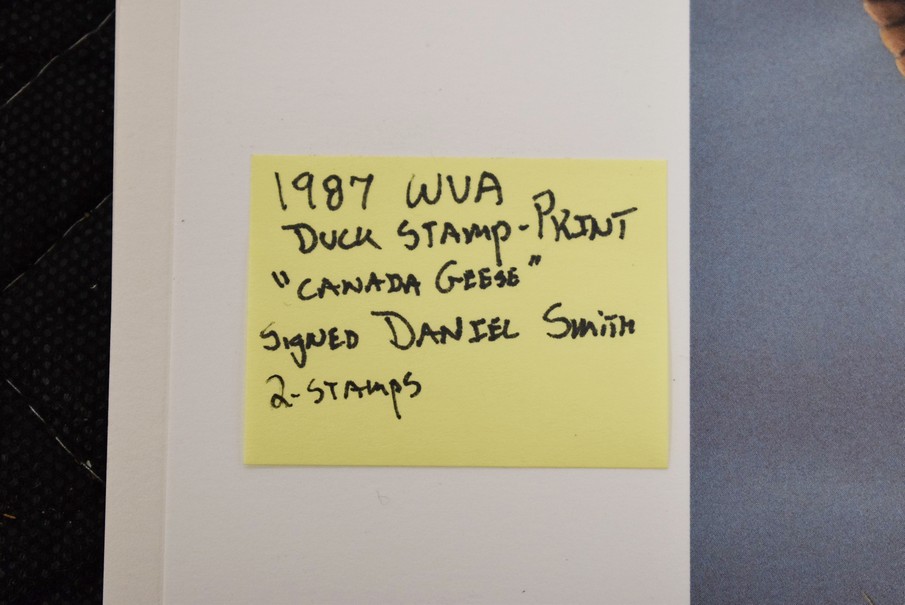 1987 WVA
DUCK STAMP-PRINT
"CANADA GEESE"
SIGNED DANIEL SMITH
2-STAMPS